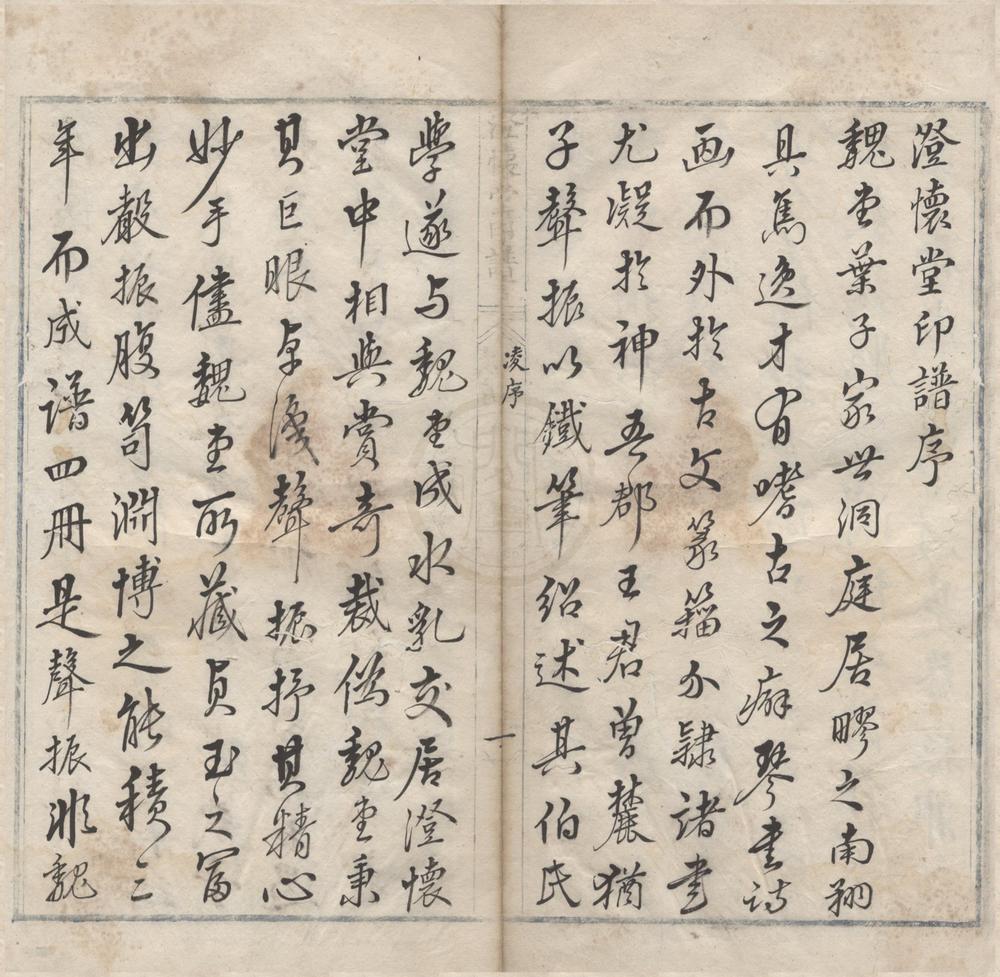 澄懷堂印譜序
魏堂葉子家世洞庭居疁之南翔
具雋逸才有嗜古之癖琴書詩
画而外於古文篆籀分隸諸書
尤凝於神吾郡王君曾麓猶
子聲振以鐵筆紹述其伯氏
澄懷堂印譜
凌序
一
學遂与魏堂成水乳交居澄懷
堂中相與賞奇裁偽魏堂秉
其巨眼卓識聲振抒其精心
妙手儘魏堂所藏員玉之富
出聲振腹笥淵博之能積三
年而成譜四冊是聲振非魏